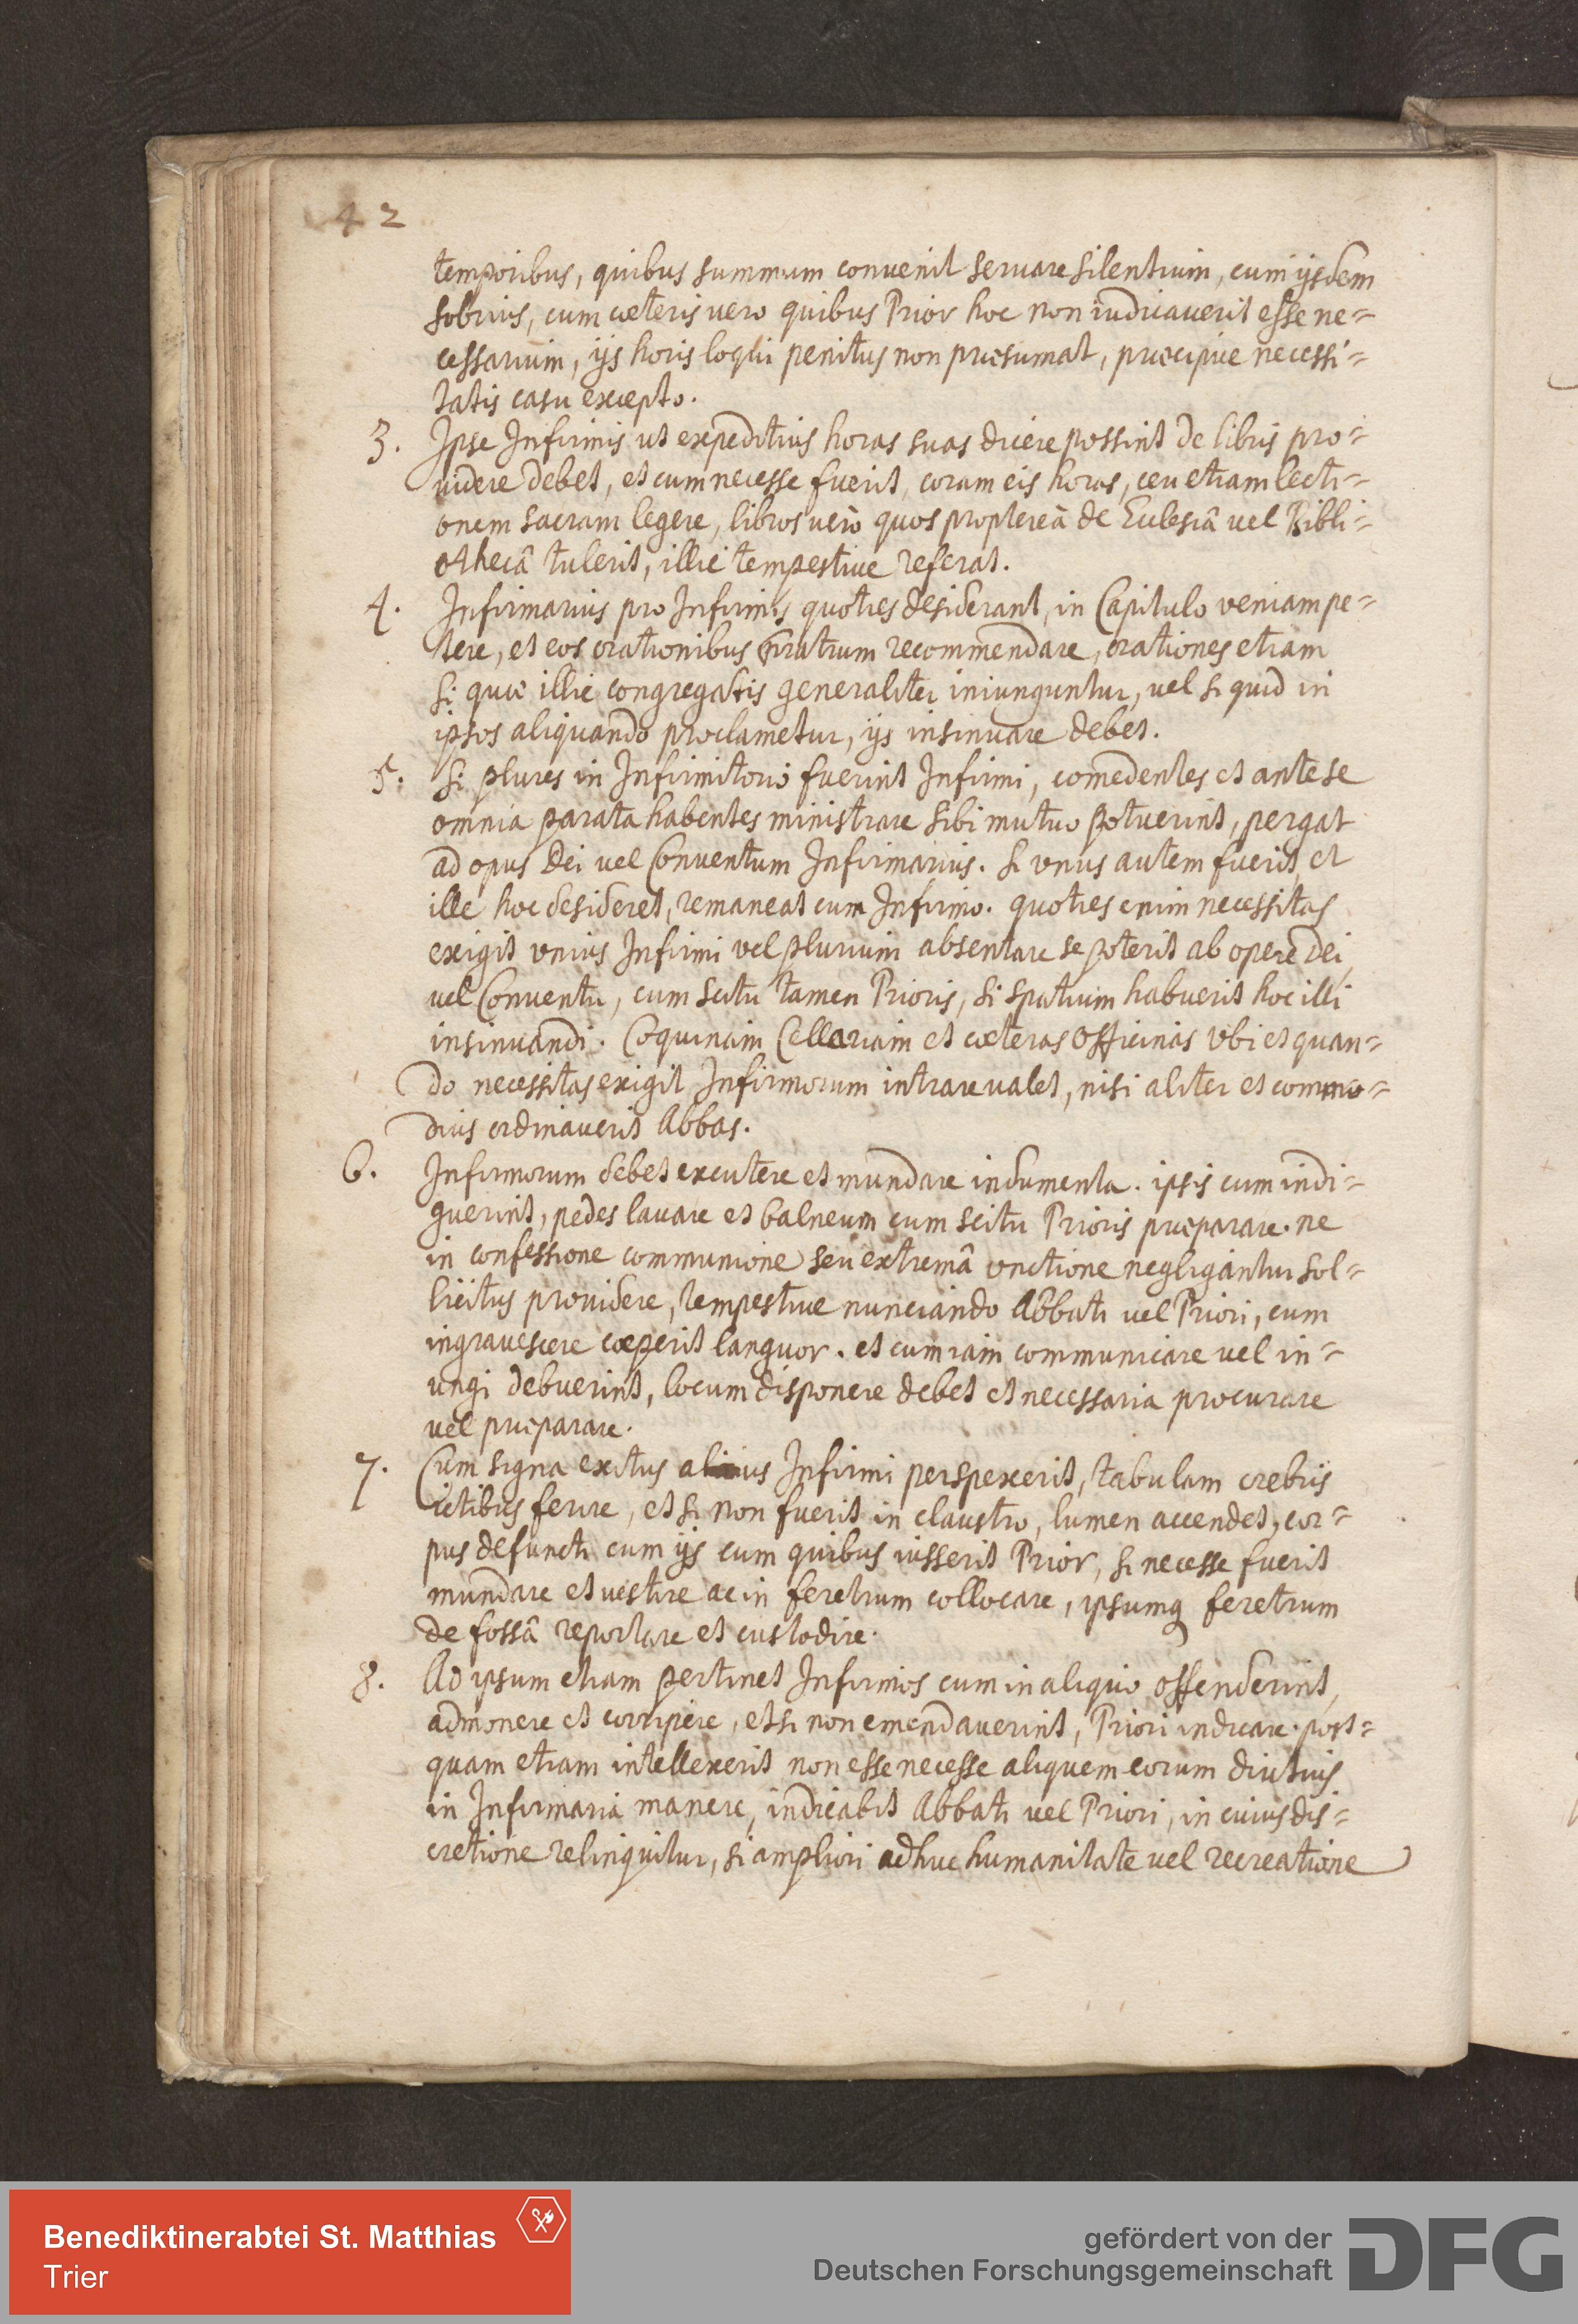 42
temporibus, quibus summum convenit servare silentium, cum ijsdem
sobrius, cum cæteris vero quibus Prior hoc non iudicaverit esse ne=
cessarium, ijs horis loqui penitus non præsumat, præcipuæ necessi=
tatis casu excepto.
3. Ipse Infirmis ut expeditius horas suas dicere possint de libris pro=
videre debet, et cum necesse fuerit, coram eis horas, ceu etiam lecti=
onem sacram legere, libros verò quos propterea de Ecclesiâ vel Bibli=
othecâ tulerit, illic tempestive referat.
4. Infirmarius pro Infirmis quoties desiderant, in Capitulo veniam pe=
tere, et eos orationibus fratrum recommendare, orationes etiam
si quæ illic congregatis generaliter iniunguntur, vel si quid in
ipsos aliquando proclametur, ijs insinuare debet.
5. Si plures in Infirmitorio fuerint Infirmi, comedentes et ante se
omnia parata habentes ministrare sibi mutuo potuerint, pergat
ad opus Dei vel Conventum Infirmarius. Si unus autem fuerit et
ille hoc desideret, remaneat cum Infirmo. quoties enim necessitas
exigit unius Infirmi vel plurium absentare se poterit ab opere Dei
vel Conventu, cum scitu tamen Prioris, si spatium habuerit hoc illi
insinuandi. Coquinam Cellariam et cæteras Officinas ubi et quan=
do necessitas exigit Infirmorum intrare valet, nisi aliter et commo=
dius ordinaverit Abbas.
6. Infirmorum debet excutere et mundare indumenta. ipsis cum indi=
guerint, pedes lavare et balneum cum scitu Prioris præparare. ne
in confessione communione seu extremâ unctione negligantur sol=
licitus providere, tempestive nunciando Abbati vel Priori, cum
ingravescere cœperit languor. et cum iam communicare vel in=
ungi debuerint, locum disponere debet et necessaria procurare
vel præparare.
7. Cum signa exitus alicuius Infirmi perspexerit, tabulam crebris
ictibus ferire, et si non fuerit in claustro, lumen accendet, cor=
pus defuncti cum ijs cum quibus iusserit Prior, si necesse fuerit
mundare et vestire ac in feretrum collocare, ipsumq feretrum
de fossâ reportare et custodire.
8. Ad ipsum etiam pertinet Infirmos cum in aliquo offenderint,
admonere et corripere, et si non emendaverint, Priori indicare. post=
quam etiam intellexerit non esse necesse aliquem eorum diutius
in Infirmaria manere, indicabit Abbati vel Priori, in cuius dis=
cretione relinquitur, si ampliori adhuc humanitate vel recreatione
Benediktinerabtei St. Matthias
Trier
gefördert von der
Deutschen Forschungsgemeinschaft
DFG